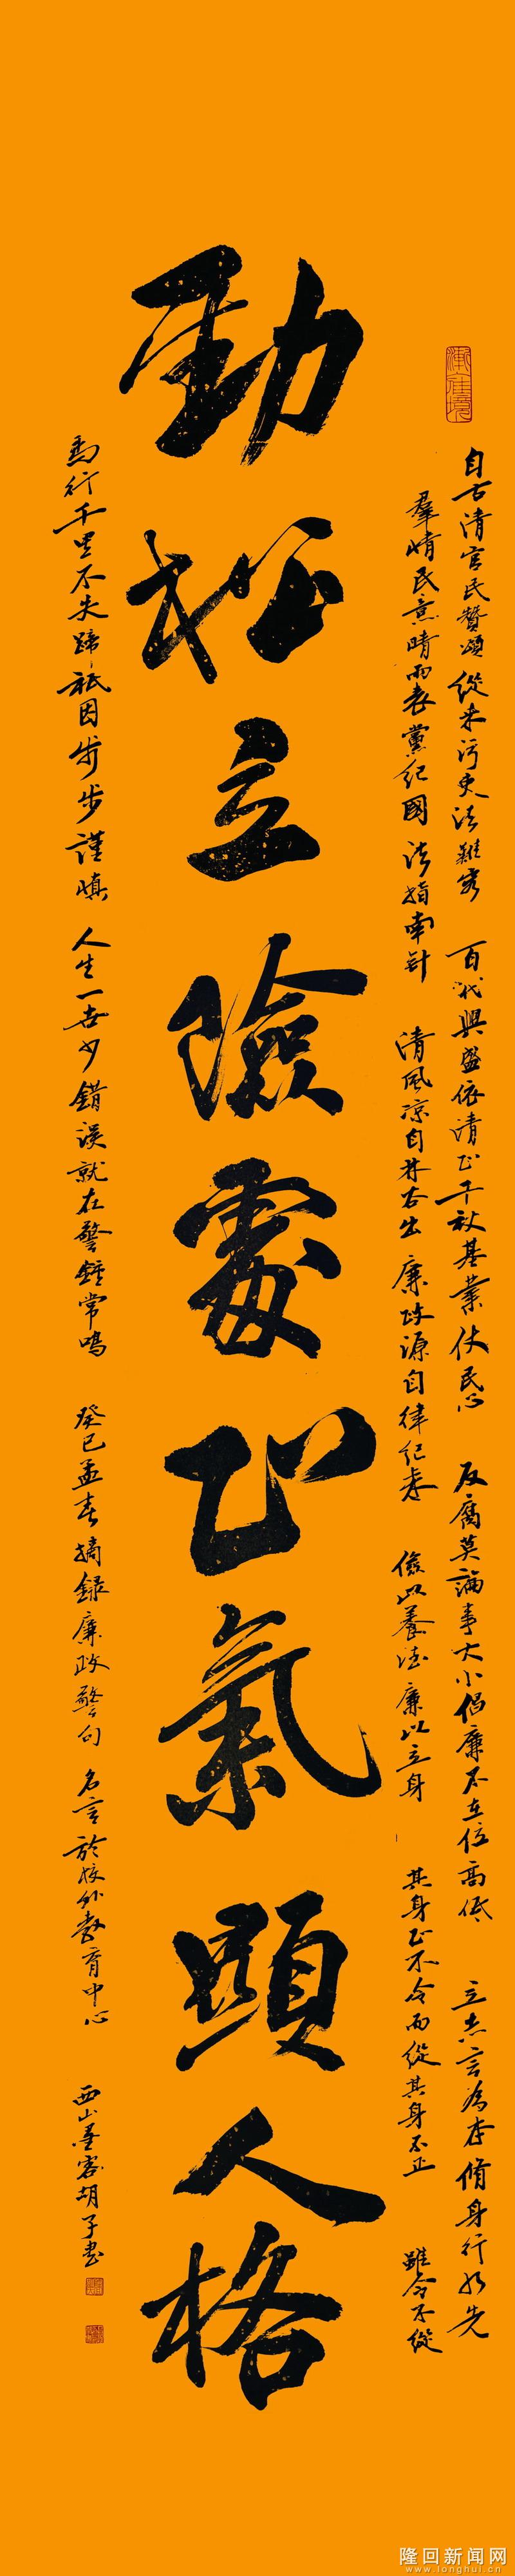 漸佳境
自古清官民贊頌 從来污吏法難容 百代興盛依清正 千秋基業仗民心 反腐莫論事大小 倡廉不在位高低 立志言為本 脩身行為先
羣情民意晴雨表 黨紀國法指南針 清風凉自林谷出 廉政源自律紀来 儉以養德 廉以立身 其身正不令而從 其身不正 雖令不從
劲松立險處正氣顯人格
馬行千里不失蹄 祇因步步謹慎 人生一世少錯误 就在警鐘常鳴 癸巳孟春摘録廉政警句 名言於校外教育中心 西山墨客胡子书
隆回新闻网
www.longhui.cn